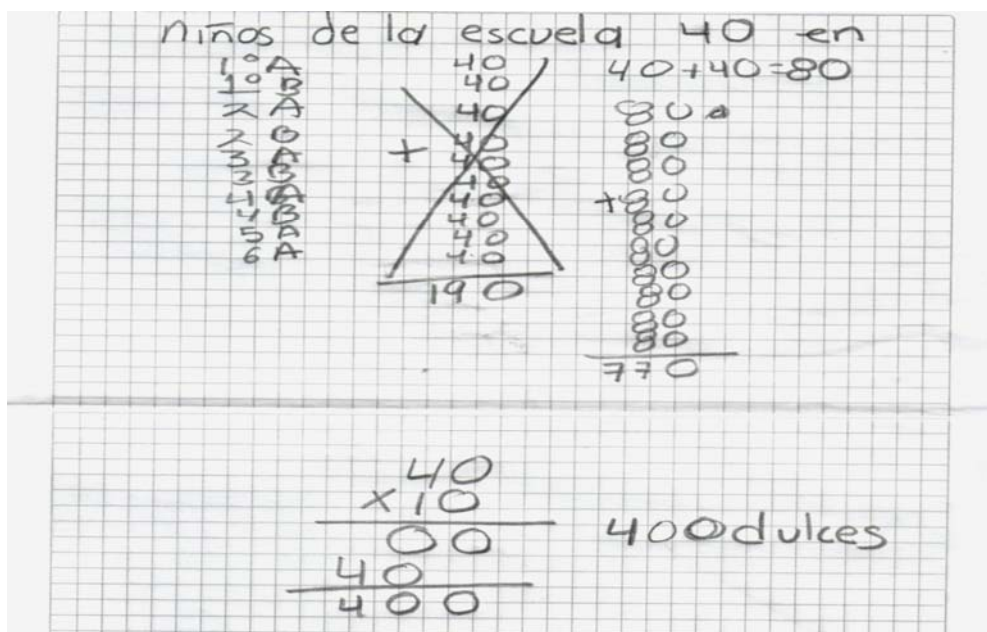 niños de la escuela 40 en
1° A
1° B
2 A
2 B
3 A
3 B
4 A
4 B
5 A
6 A
40
40
40
40
+ 40
40
40
40
40
40
190
40+40=80
80
80
80
+ 80
80
80
80
80
80
80
770
40
×10
00
40
400
400 dulces